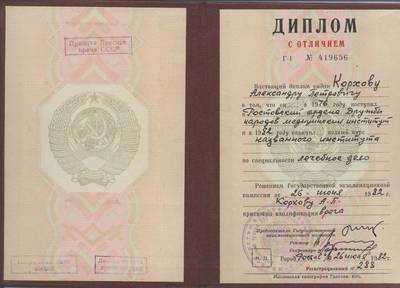 врача СССР
ДИПЛОМ
С ОТЛИЧИЕМ
Г-I № 419656
Настоящий диплом выдан Корхову
Александру Петровичу
в том, что он в 1976 году поступил
в Ростовский ордена Дружбы
народов медицинский институт
и в 1982 году окончил полный курс
названного института
по специальности лечебное дело
Решением Государственной экзаменационной
комиссии от 26 июня 1982 г.
Корхову А.П.
присвоена квалификация врача
Председатель Государственной
экзаменационной комиссии
Ректор
Секретарь
М.П.
Город Ростов 26 июня 1982 г.
Регистрационный № 288
Московская типография Гознака.